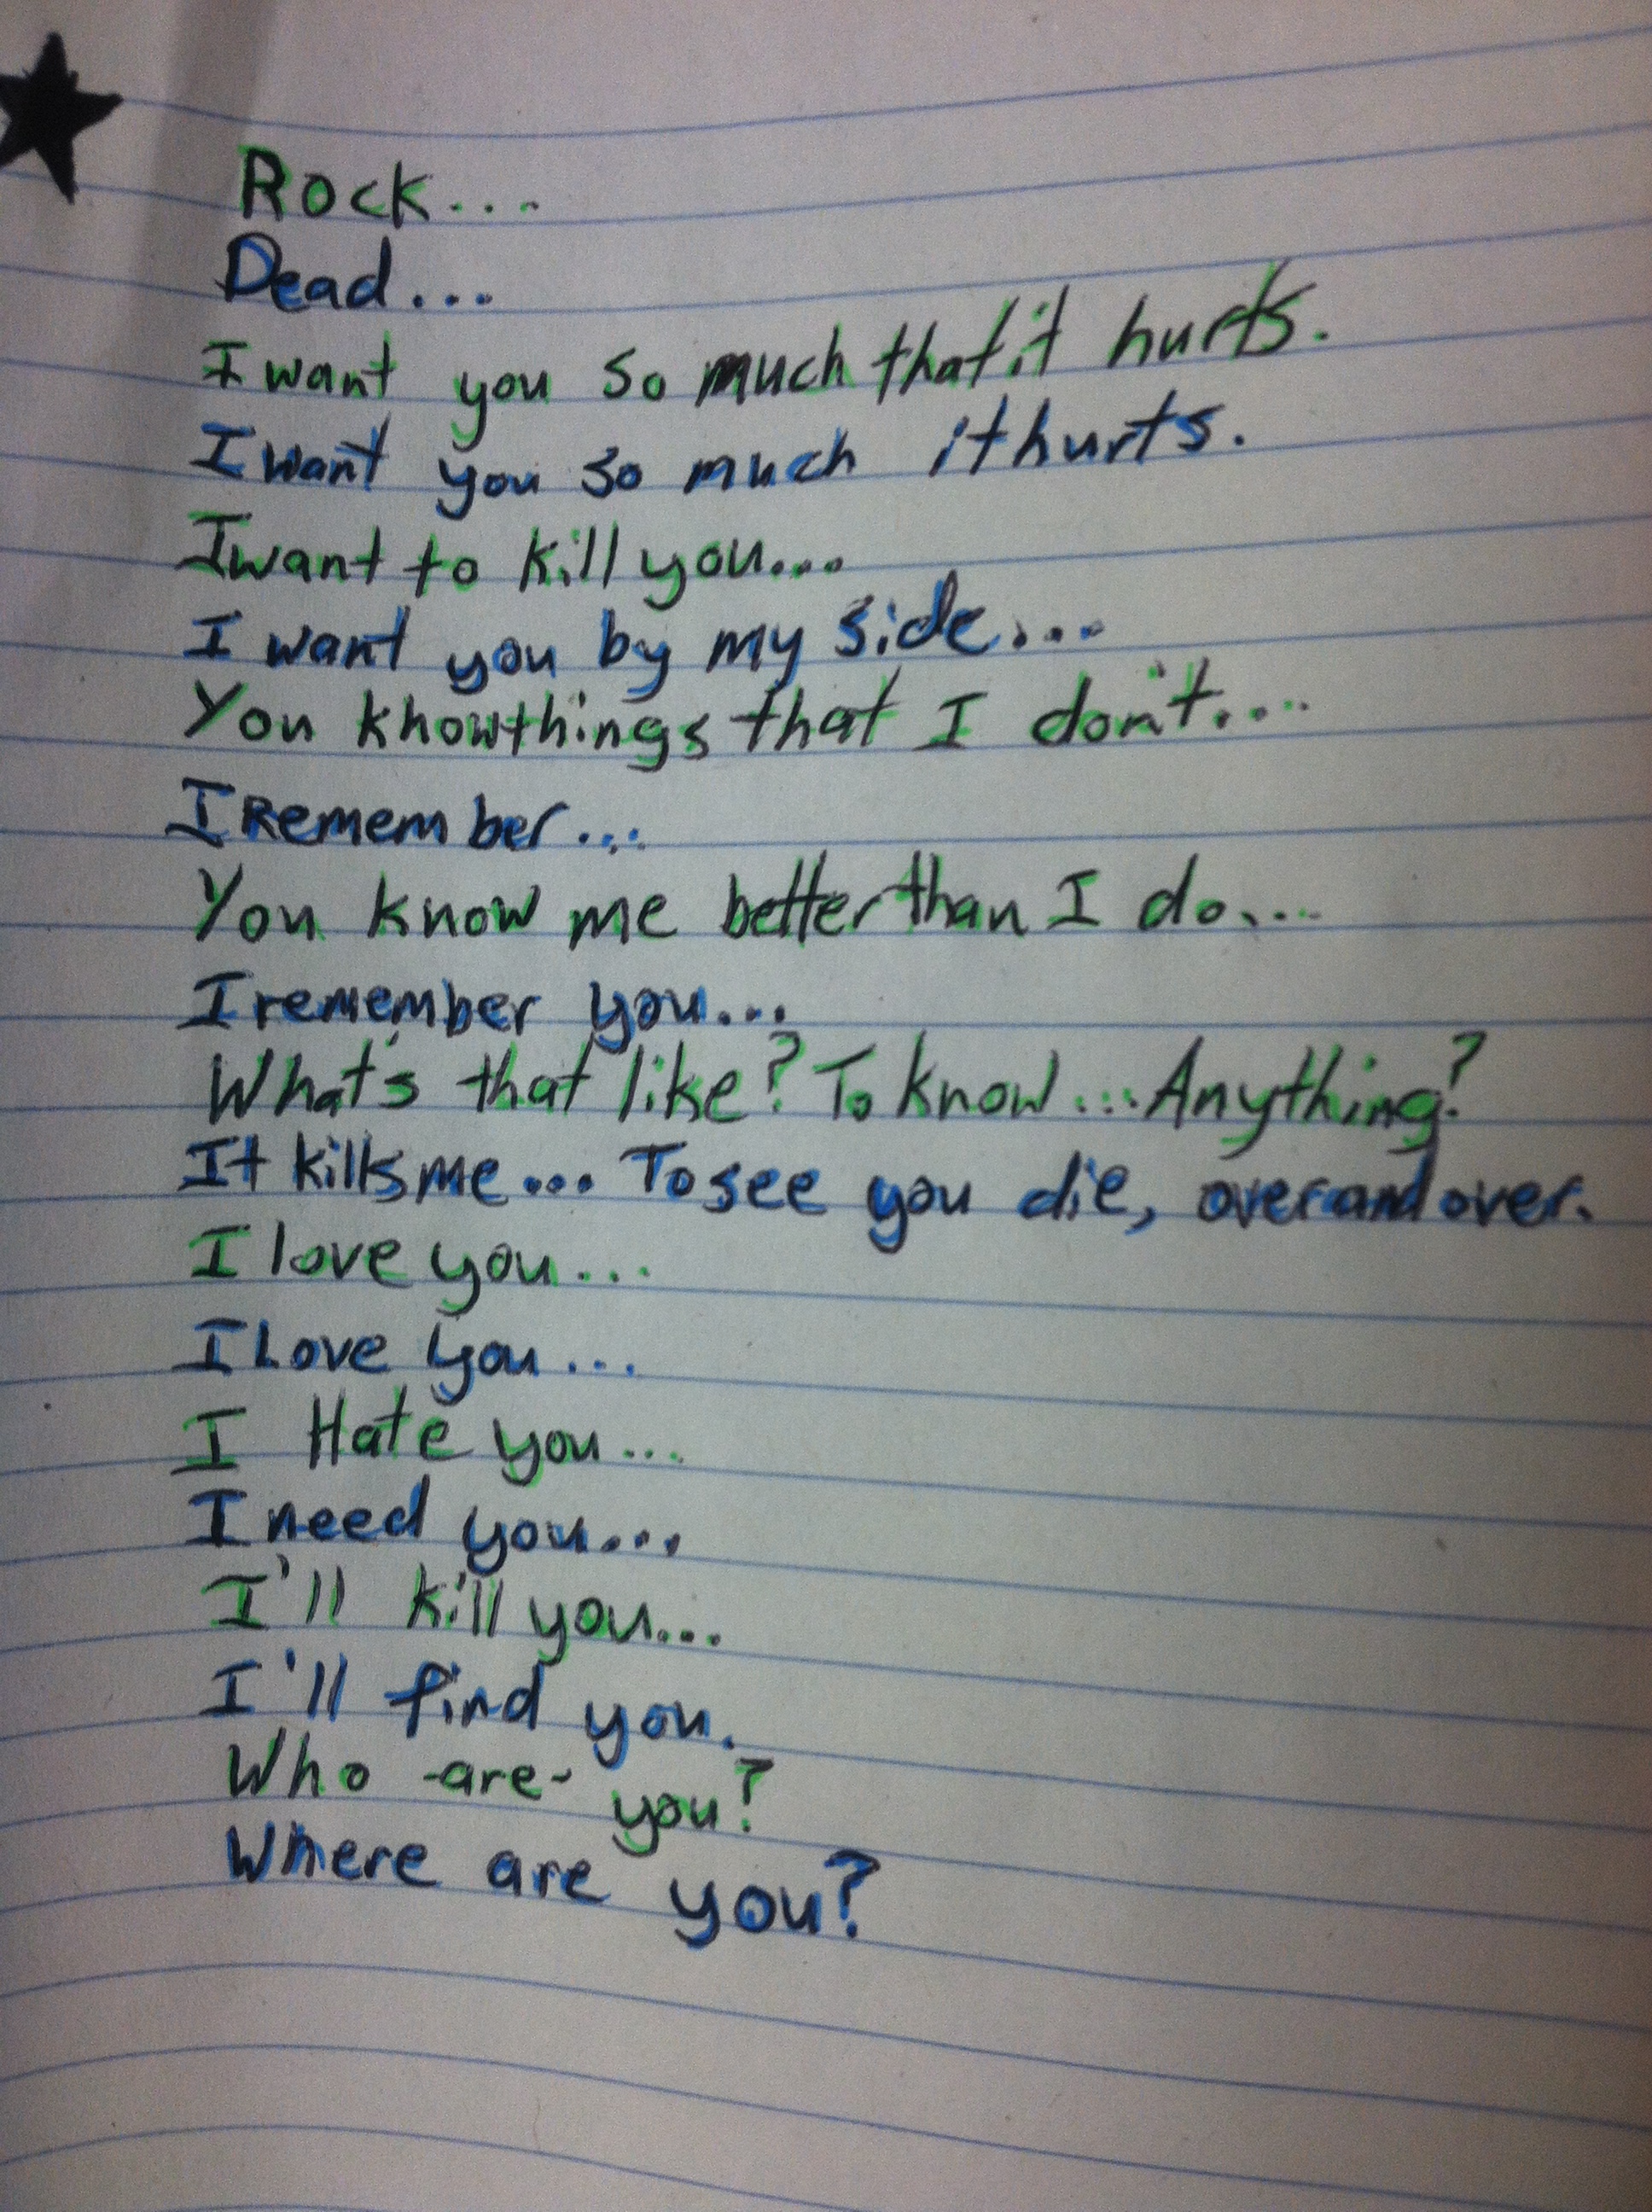 Rock...
Dead...
I want you so much that it hurts.
I want you so much it hurts.
I want to kill you...
I want you by my side...
You know things that I don't....
I Remember...
You know me better than I do....
I remember you...
What's that like? To know... Anything?
It kills me... To see you die, over and over.
I love you...
I Love you...
I Hate you...
I need you...
I'll kill you...
I'll find you.
Who -are- you?
Where are you?